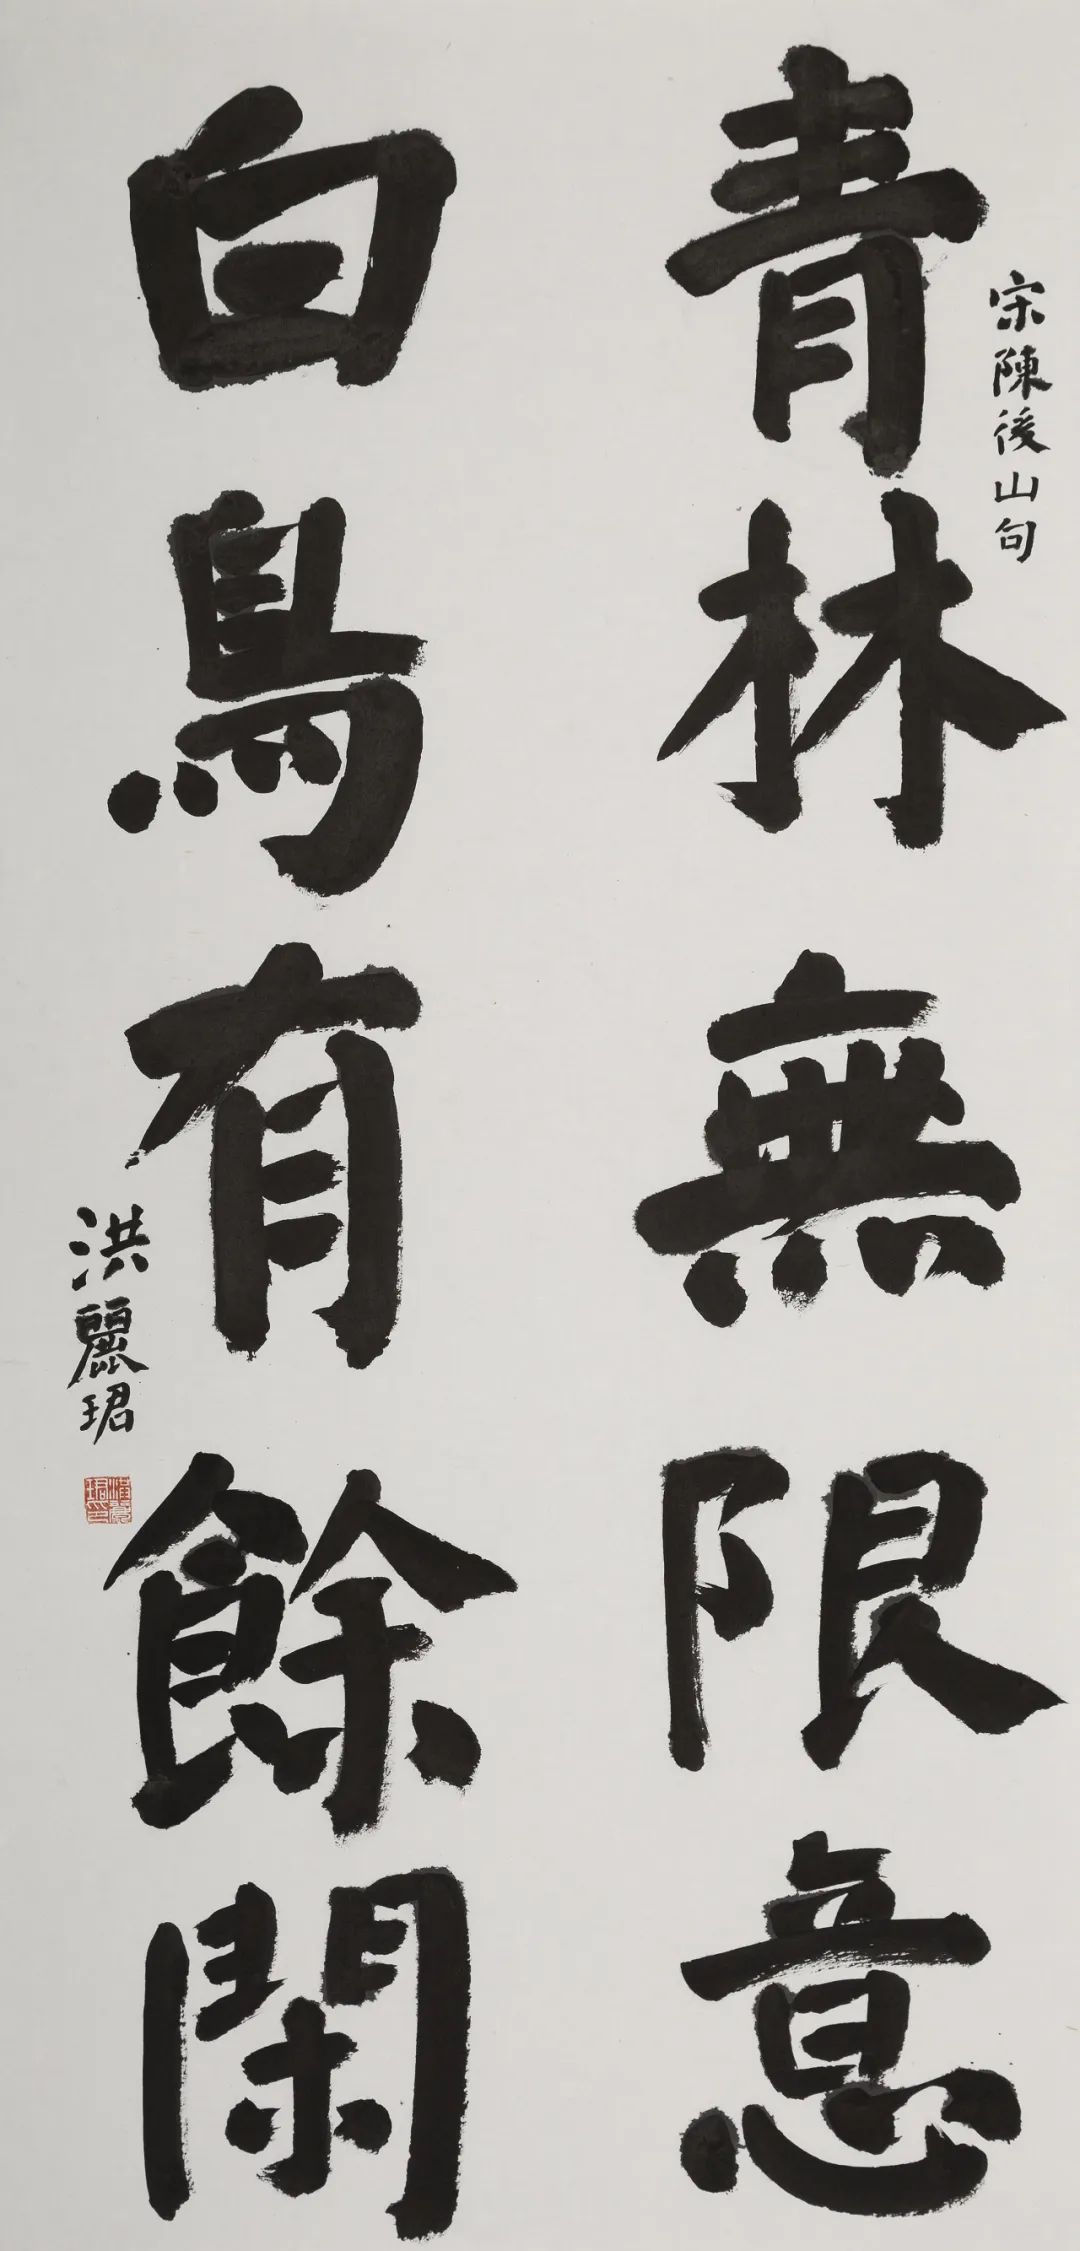 宋陳後山句
青林無限意
白鳥有餘閑
洪麗珺